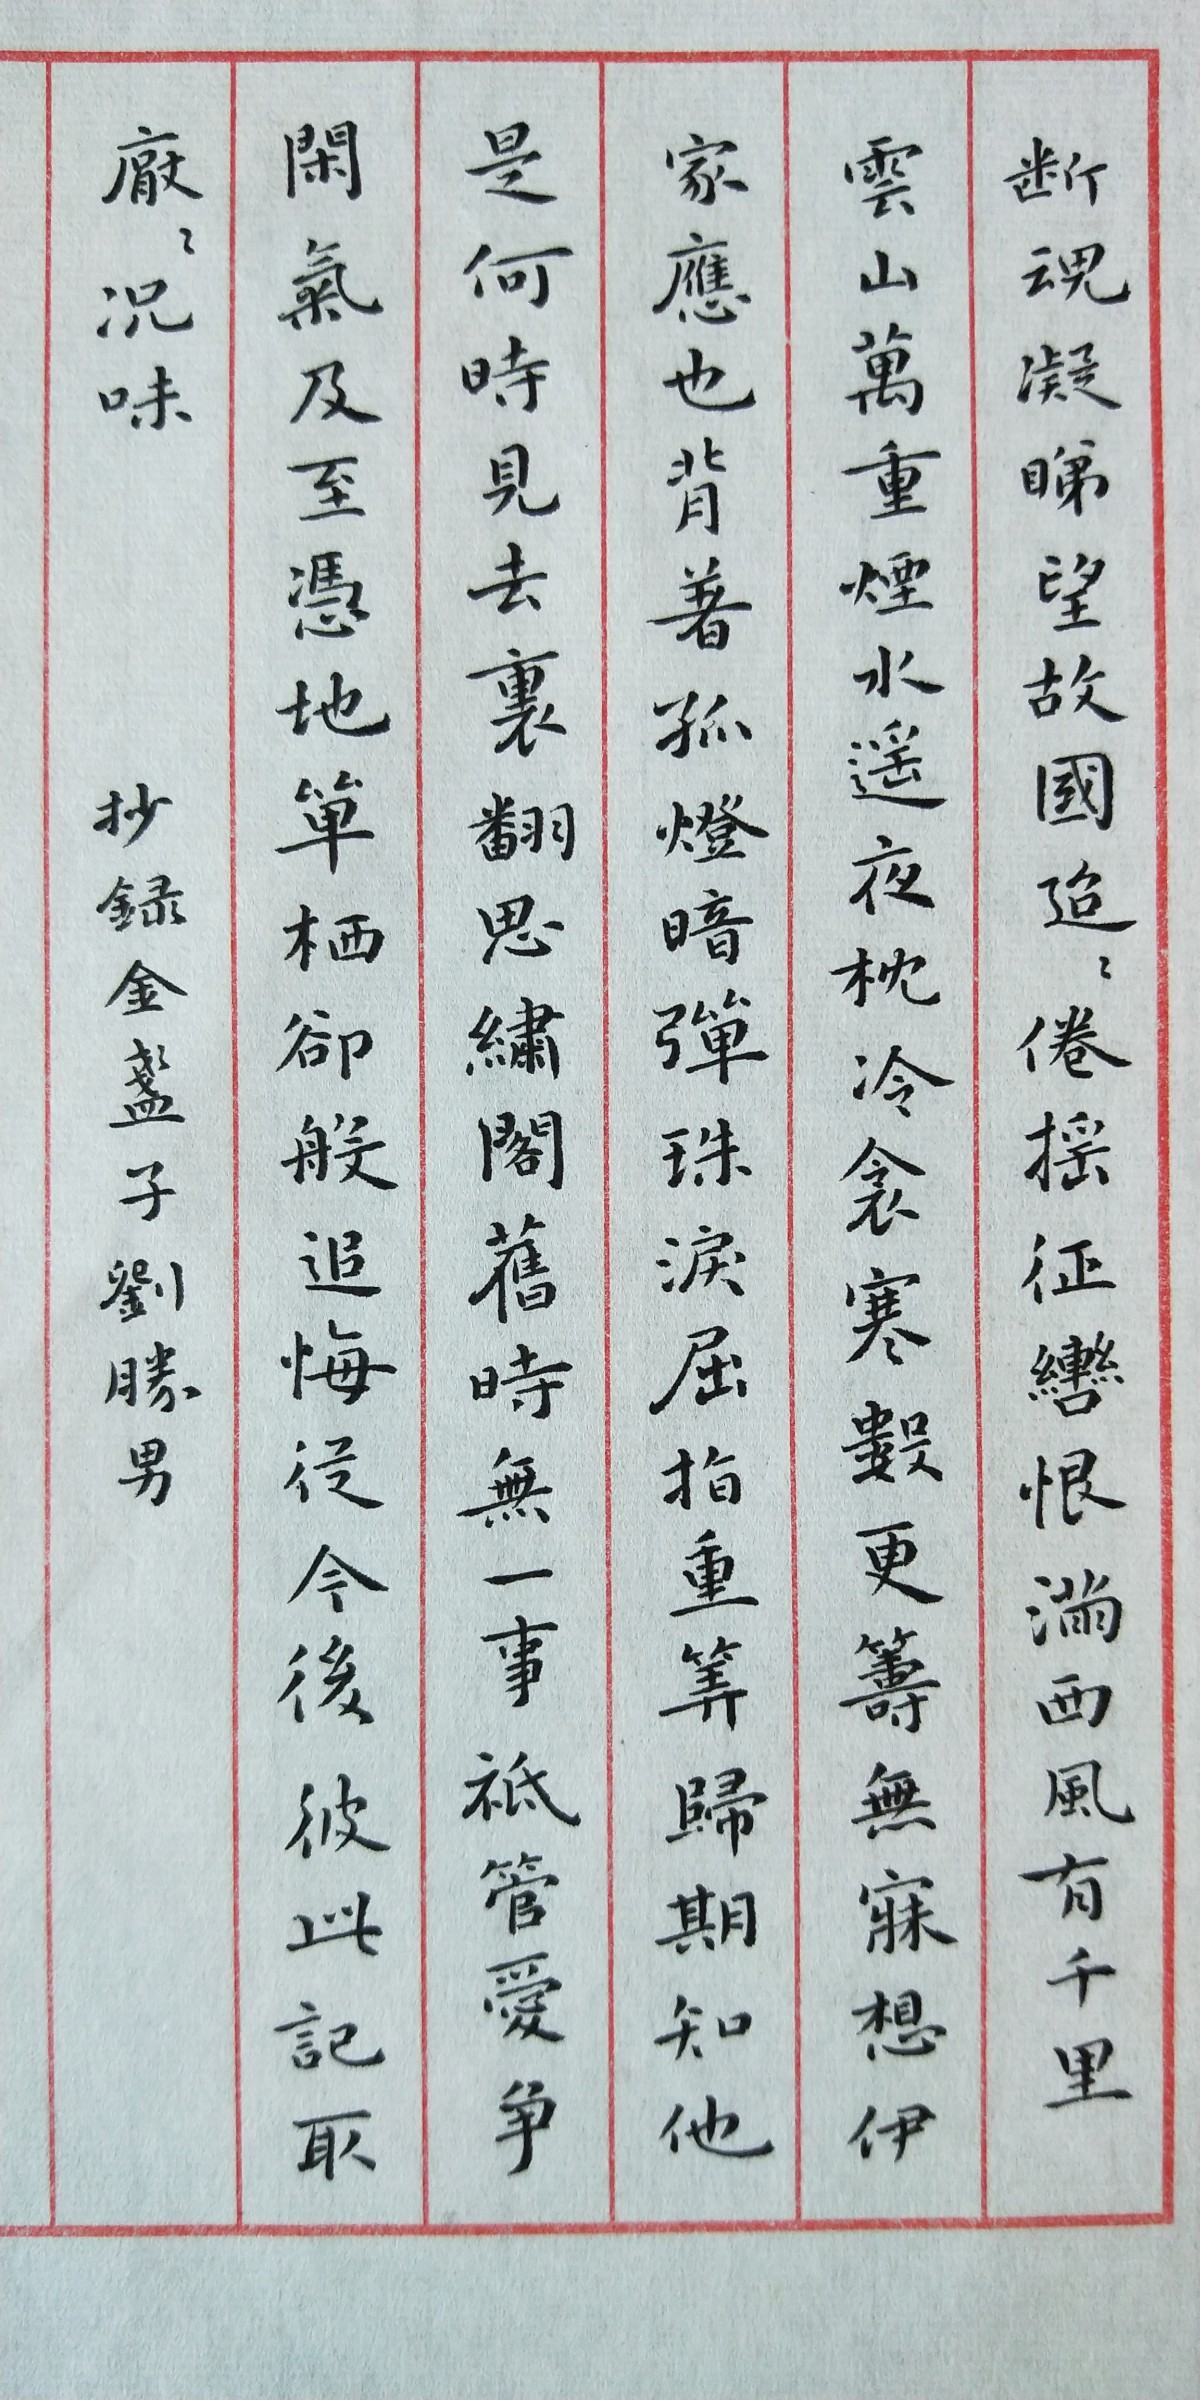 断魂凝睇望故國迢〻倦摇征轡恨滿西風有千里
雲山萬重煙水遥夜枕冷衾寒數更籌無寐想伊
家應也背著孤燈暗彈珠淚屈指重算歸期知他
是何時見去裏翻思繡閣舊時無一事祇管愛争
閑氣及至憑地單栖卻般追悔從今後彼此記取
厭〻况味
抄録金盞子劉勝男